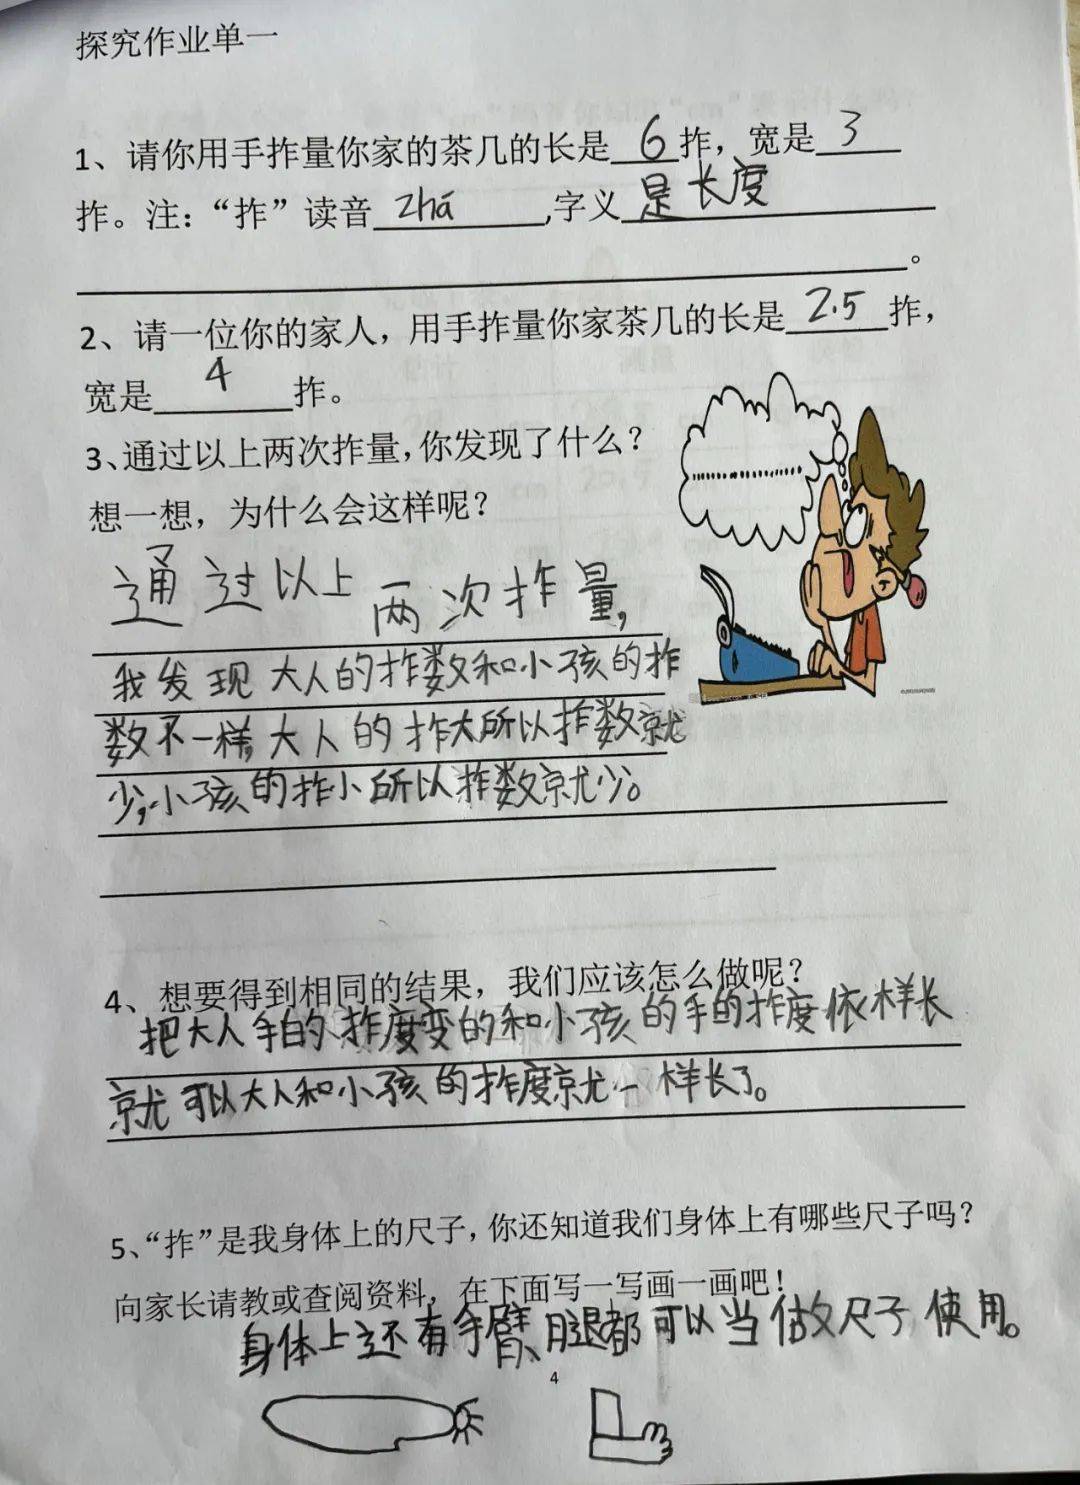 探究作业单一
1、请你用手拃量你家的茶几的长是6拃，宽是3
拃。注：“拃”读音zhǎ,字义是长度
。
2、请一位你的家人，用手拃量你家茶几的长是2.5拃，
宽是4拃。
3、通过以上两次拃量，你发现了什么？
想一想，为什么会这样呢？
通过以上两次拃量，
我发现大人的拃数和小孩的拃
数不一样，大人的拃大所以拃数就
少，小孩的拃小所以拃数就少。
4、想要得到相同的结果，我们应该怎么做呢？
把大人手的拃度变的和小孩的手的拃度依样长
就可以大人和小孩的拃度就一样长了。
5、“拃”是我身体上的尺子，你还知道我们身体上有哪些尺子吗？
向家长请教或查阅资料，在下面写一写画一画吧！
身体上还有手臂、腿都可以当做尺子使用。
4